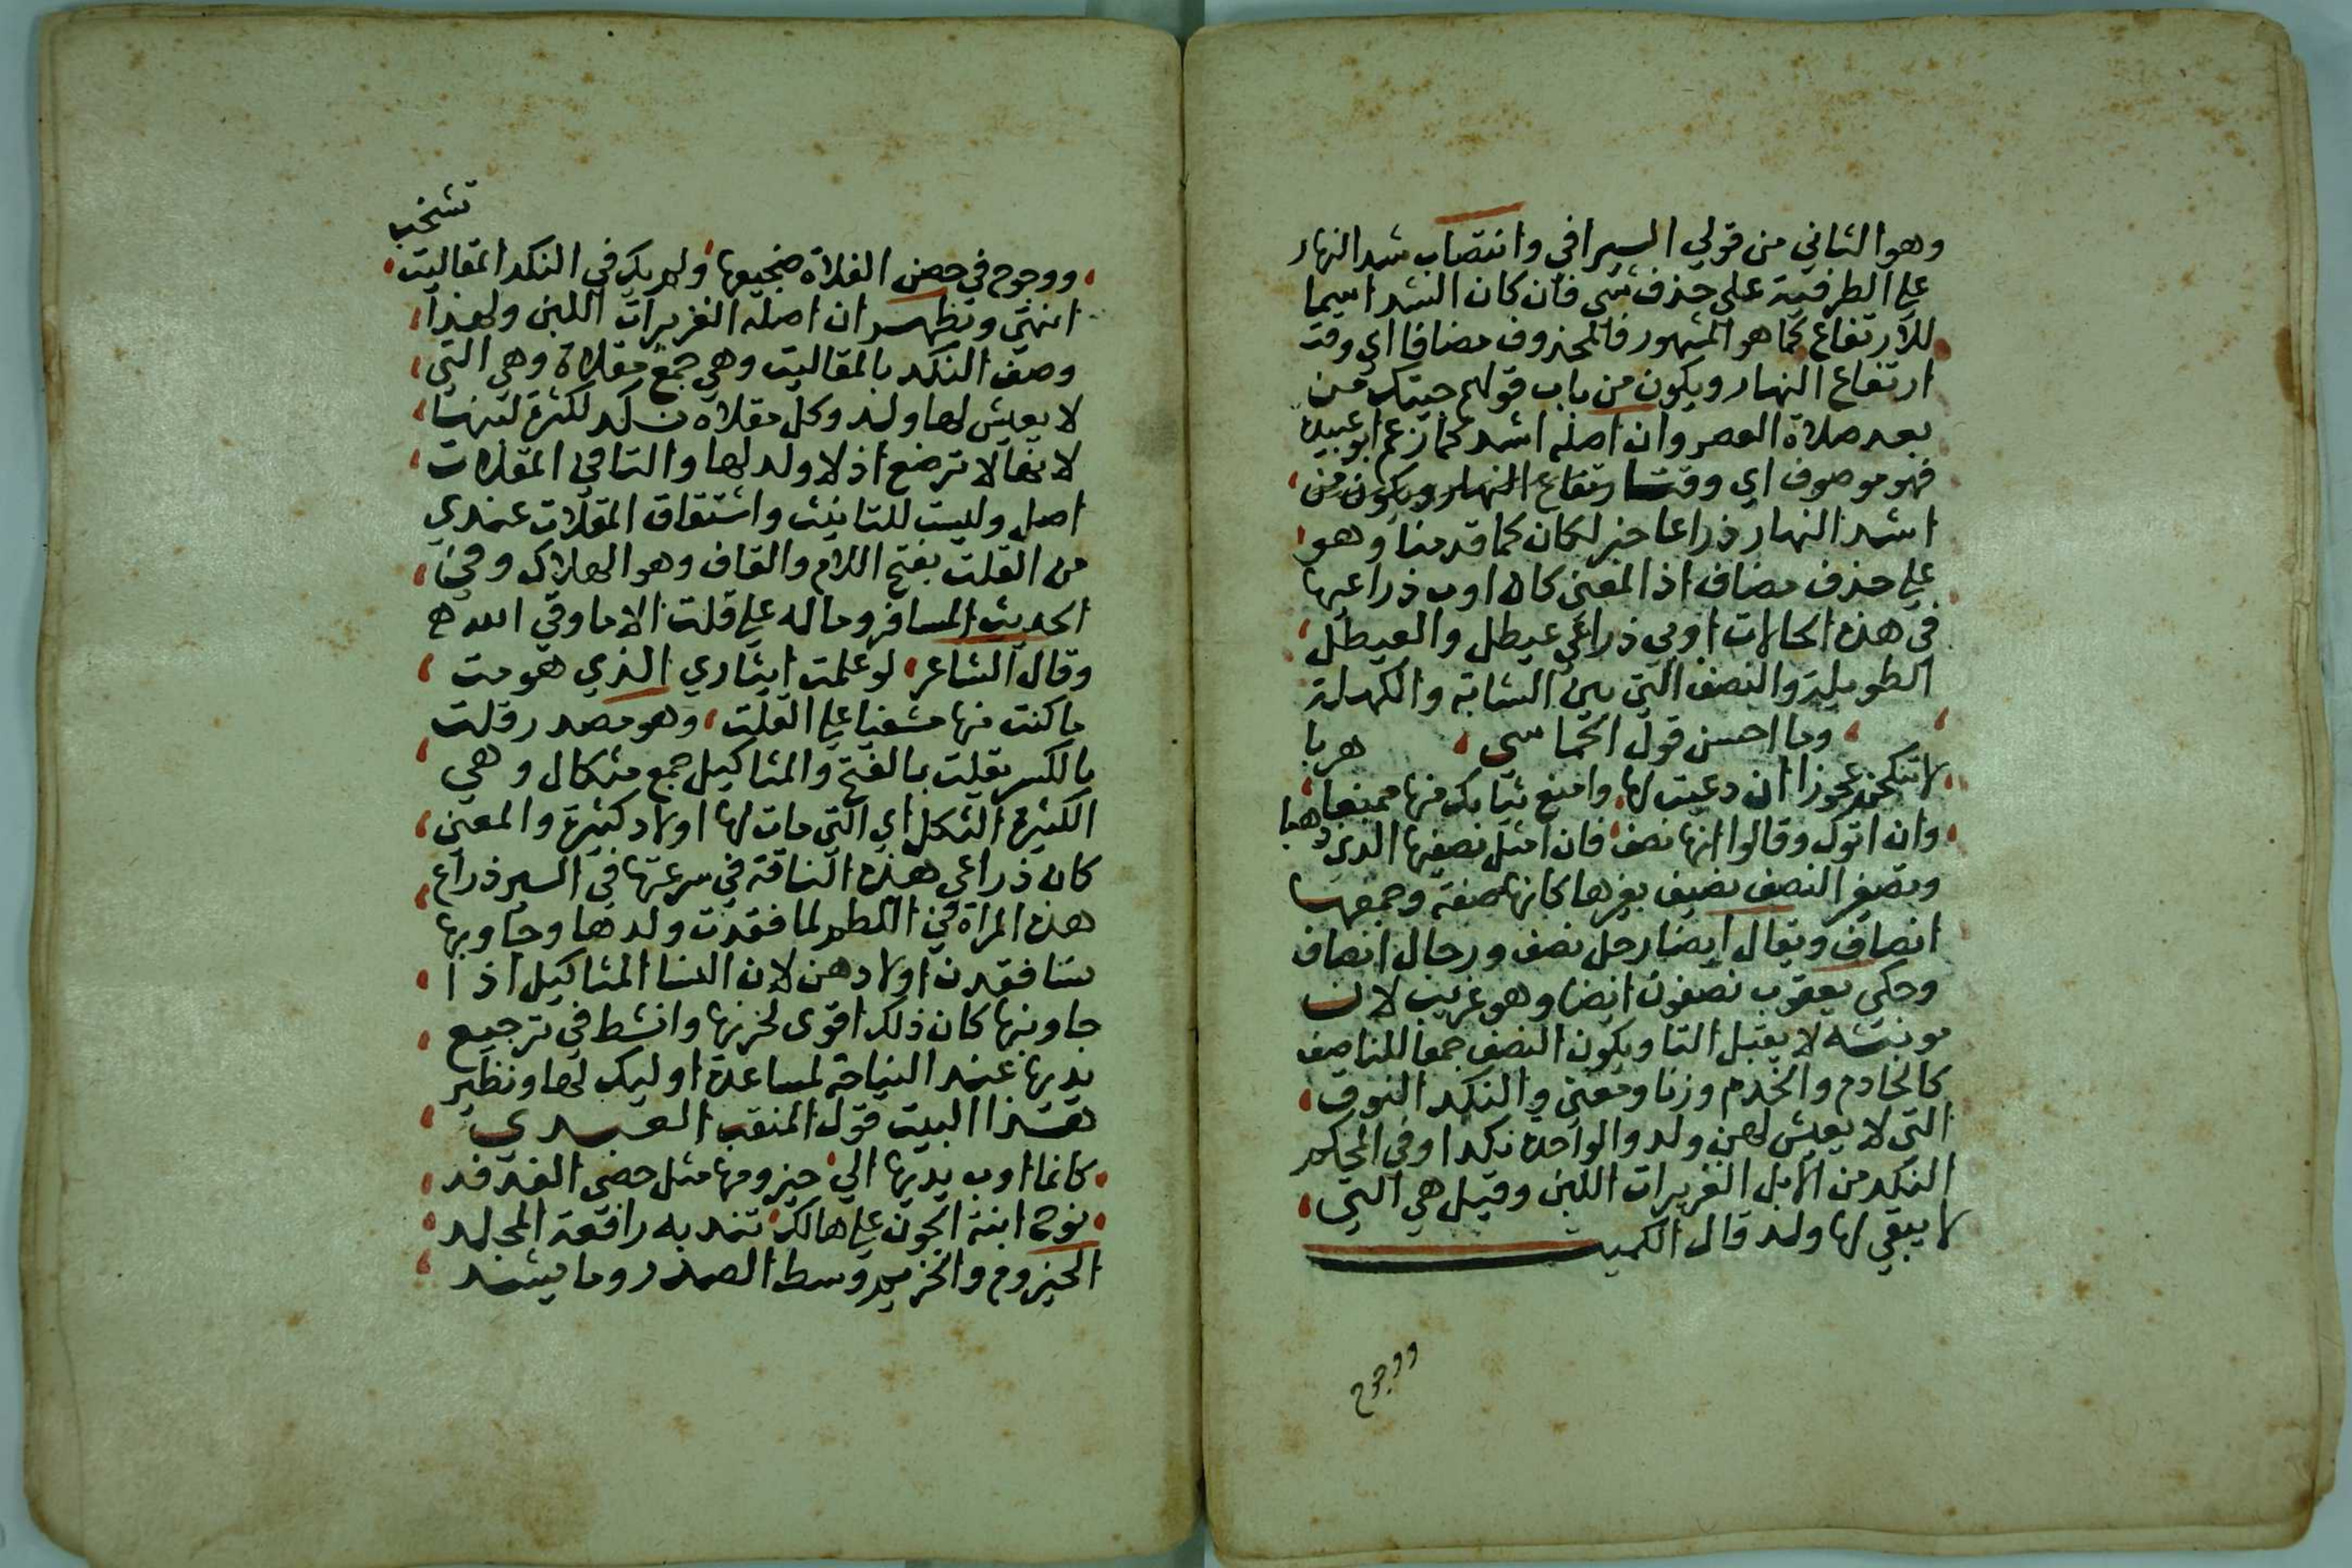 وهو الثاني من قولي السيرافي وانتصاب شد النهار
علي الظرفية علي حذف شي فان كان الشد اسيما
للارتفاع كما هو المشهور فالمحذوف مضافا اي وقت
ارتفاع النهار ويكون من باب قولهم جيتك من
بعد صلاة العصر وان اصله اشد كما زعم ابو عبيدة
فهو موصوف اي وقتا ارتفاع النهار ويكون من
اشد النهار ذراعا خبر لكان كما قدمنا وهو
علي حذف مضاف اذ المعني كان اوب ذراعيها
في هذه الحالات اوبي ذراعي عيطل والعيطل
الطويلة والنصف التي بين الشابة والكهلة
وما احسن قول الحماسي هربا
لا تنكحن عجوزا ان دعيت لها وامنع ثيابك منها ممنعا
وان اتوك وقالوا انها نصف فان امثل نصفيها الذي ذهبا
وتصغر النصف نصيف بغيرها كانها صفة وجمعها
انصاف ويقال ايضا رجل نصف ورجال انصاف
وحكي يعقوب نصفون ايضا وهو غريب لان
مونثه لا يقبل التا ويكون النصف جمعا للناصف
كالخادم والخدم وزنا ومعني والنكد النوق
التي لا يعيش لهن ولد والواحدة نكدا وفي المحكم
النكد من الابل الغزيرات اللبن وقيل هي التي
لا يبقي لها ولد قال الكميت
ووجوح
تشخب
ووجوح في حضن الفلاة ضجيعها ولم يك في النكد المقاليت
انتهي ويظهر ان اصله الغزيرات اللبن ولهذا
وصف النكد بالمقاليت وهي جمع مقلاة وهي التي
لا يعيش لها ولد وكل مقلاة نكد لكثرة لبنها
لانها لا ترضع اذ لا ولد لها والتا في المقلات
اصل وليست للتانيث واشتقاق المقلات عندي
من القلت بفتح اللام والقاف وهو الهلاك وفي
الحديث المسافر وماله علي قلت الا ما وقي الله
وقال الشاعر لو علمت ايثاري الذي هومت
ما كنت منها مشفيا علي القلت وهو مصدر قلت
بالكسر يقلت بالفتح والمثاكيل جمع مثكال وهي
الكثيرة الثكل اي التي مات لها اولاد كثيرة والمعني
كان ذراعي هذه الناقة في سرعتها في السير ذراع
هذه المراة في اللطم لما فقدت ولدها وجاوبها
نسا فقدن اولادهن لان النسا المثاكيل اذا
جاوبنها كان ذلك اقوي لحزنها وانشط في ترجيع
يديها عند النياحة لمساعدة اوليك لها ونظير
هذا البيت قول المثقب العبدي
كانما اوب يديها الي حيزومها مثل حصي الفدفد
نوح ابنة الجون علي هالك تندبه رافعة المجلد
الحيزوم والحزيم وسط الصدر وما يشد